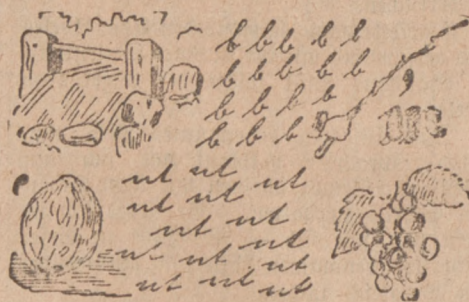 b b b b b
b b b b b
b b b b
b b b b ,
, ut ut
ut ut ut
ut ut
ut ut ut ut
ut ut ut